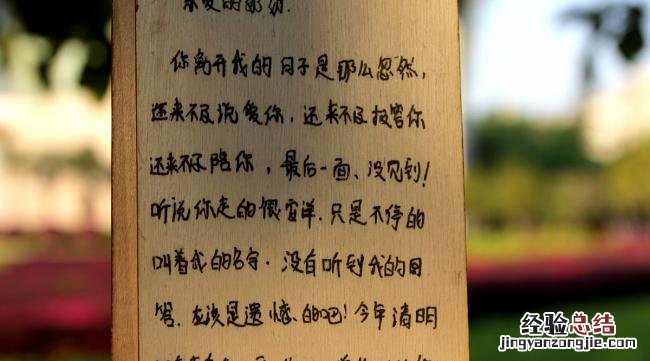 亲爱的奶奶.
你离开我的日子是那么忽然,
还来不及说爱你,还来不及报答你
还来不及陪你,最后一面、没见到!
听说你走的很安详.只是不停的
叫着我的名字.没有听到我的回
答.应该是遗憾、的吧!今年清明
经验总结
jingyanzongjie.com